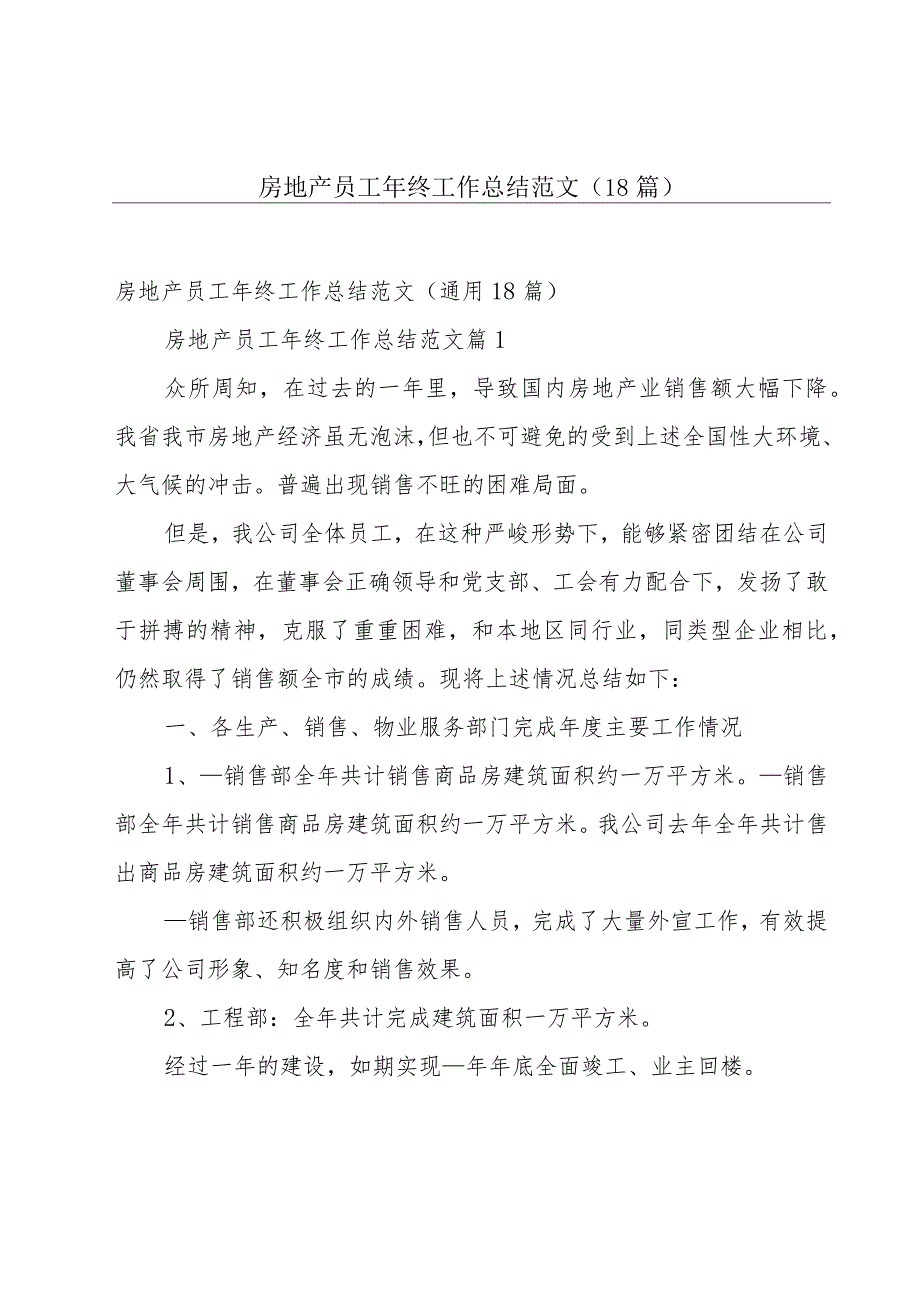 房地产员工年终工作总结范文（18篇）
房地产员工年终工作总结范文（通用18篇）
房地产员工年终工作总结范文篇1
众所周知，在过去的一年里，导致国内房地产业销售额大幅下降。
我省我市房地产经济虽无泡沫，但也不可避免的受到上述全国性大环境、
大气候的冲击。普遍出现销售不旺的困难局面。
但是，我公司全体员工，在这种严峻形势下，能够紧密团结在公司
董事会周围，在董事会正确领导和党支部、工会有力配合下，发扬了敢
于拼搏的精神，克服了重重困难，和本地区同行业，同类型企业相比，
仍然取得了销售额全市的成绩。现将上述情况总结如下：
一、各生产、销售、物业服务部门完成年度主要工作情况
1、—销售部全年共计销售商品房建筑面积约一万平方米。—销售
部全年共计销售商品房建筑面积约一万平方米。我公司去年全年共计售
出商品房建筑面积约一万平方米。
—销售部还积极组织内外销售人员，完成了大量外宣工作，有效提
高了公司形象、知名度和销售效果。
2、工程部：全年共计完成建筑面积一万平方米。
经过一年的建设，如期实现—年年底全面竣工、业主回楼。